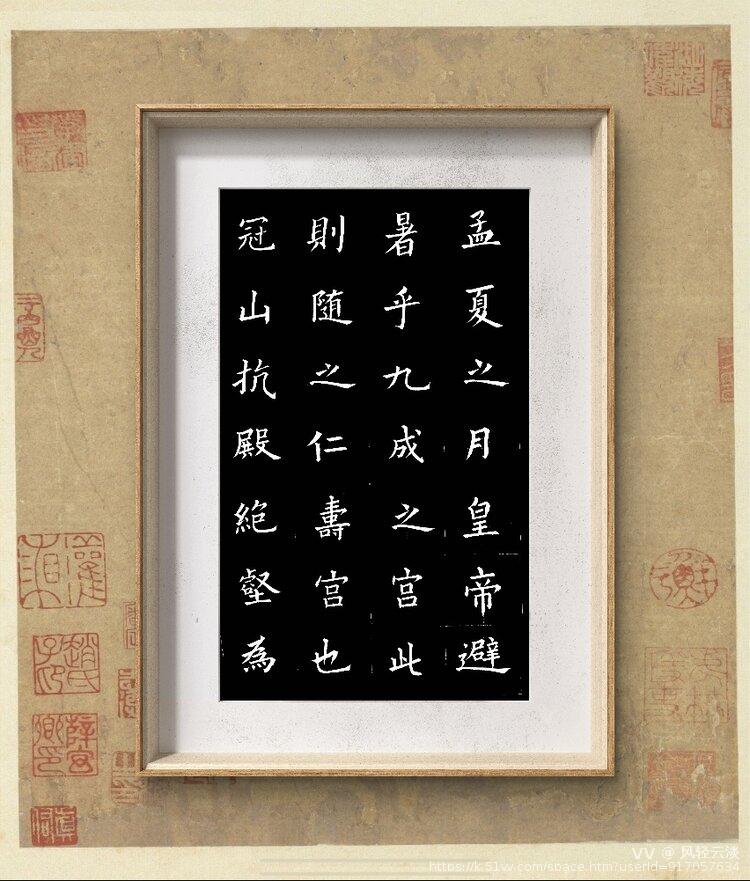 孟夏之月皇帝避
暑乎九成之宫此
則随之仁壽宫也
冠山抗殿絶壑為
VV @ 风轻云淡
https://k.51vv.com/space.htm?userid=917057634